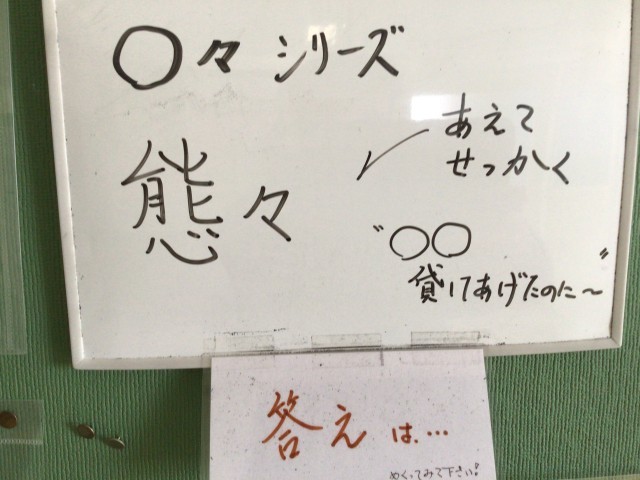 〇々シリーズ
態々
あえて
せっかく
"〇〇
貸してあげたのに～"
答えは…
めくってみて下さい!